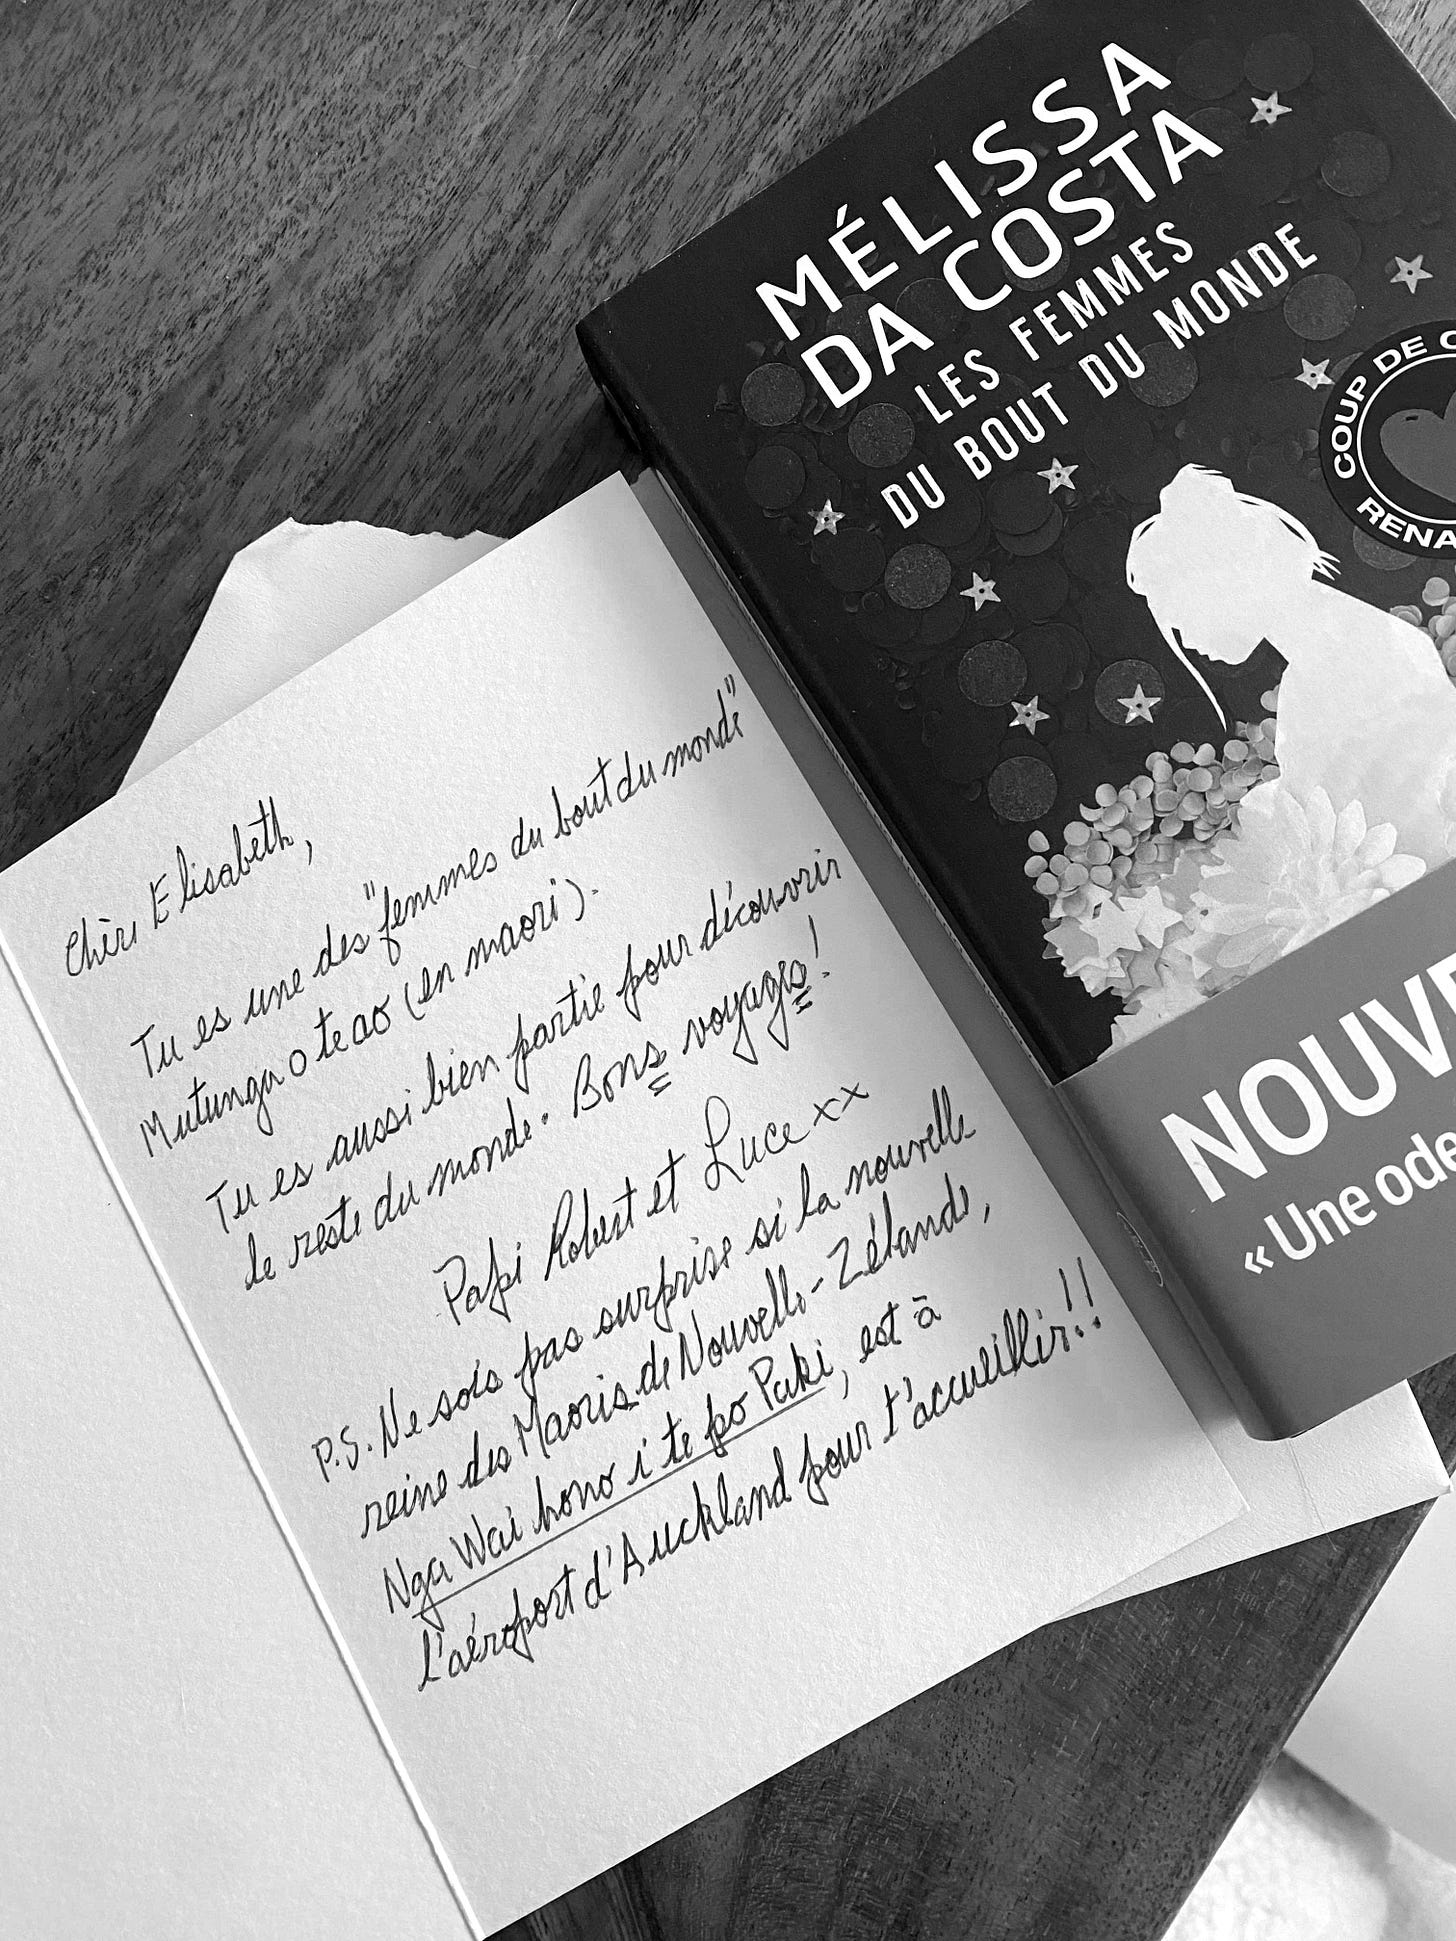 MÉLISSA
DA COSTA
LES FEMMES
DU BOUT DU MONDE
COUP DE C
RENA
NOUVE
« Une ode
Chère Elisabeth,
Tu es une des "femmes du bout du monde"
Mutunga o te ao (en maori).
Tu es aussi bien partie pour découvrir
le reste du monde. Bons voyages!
Papi Robert et Luce xx
P.S. Ne sois pas surprise si la nouvelle
reine des Maoris de Nouvelle-Zélande,
Nga Wai hono i te po Paki, est à
l'aéroport d'Auckland pour t'accueillir!!